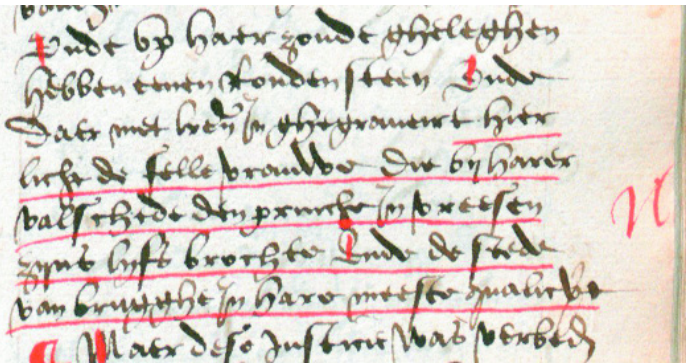 Ende up haer zoude gheleghen
hebben eenen Ronden steen Ende
daer met lren In ghegraueirt hier
licht de felle vrauwe die bij harer
valschede den prince In vreesen
zijns lijfs brochte Ende de stede
van brugghe In hare meeste qualicheit
Maer dese Justicie was verbedt